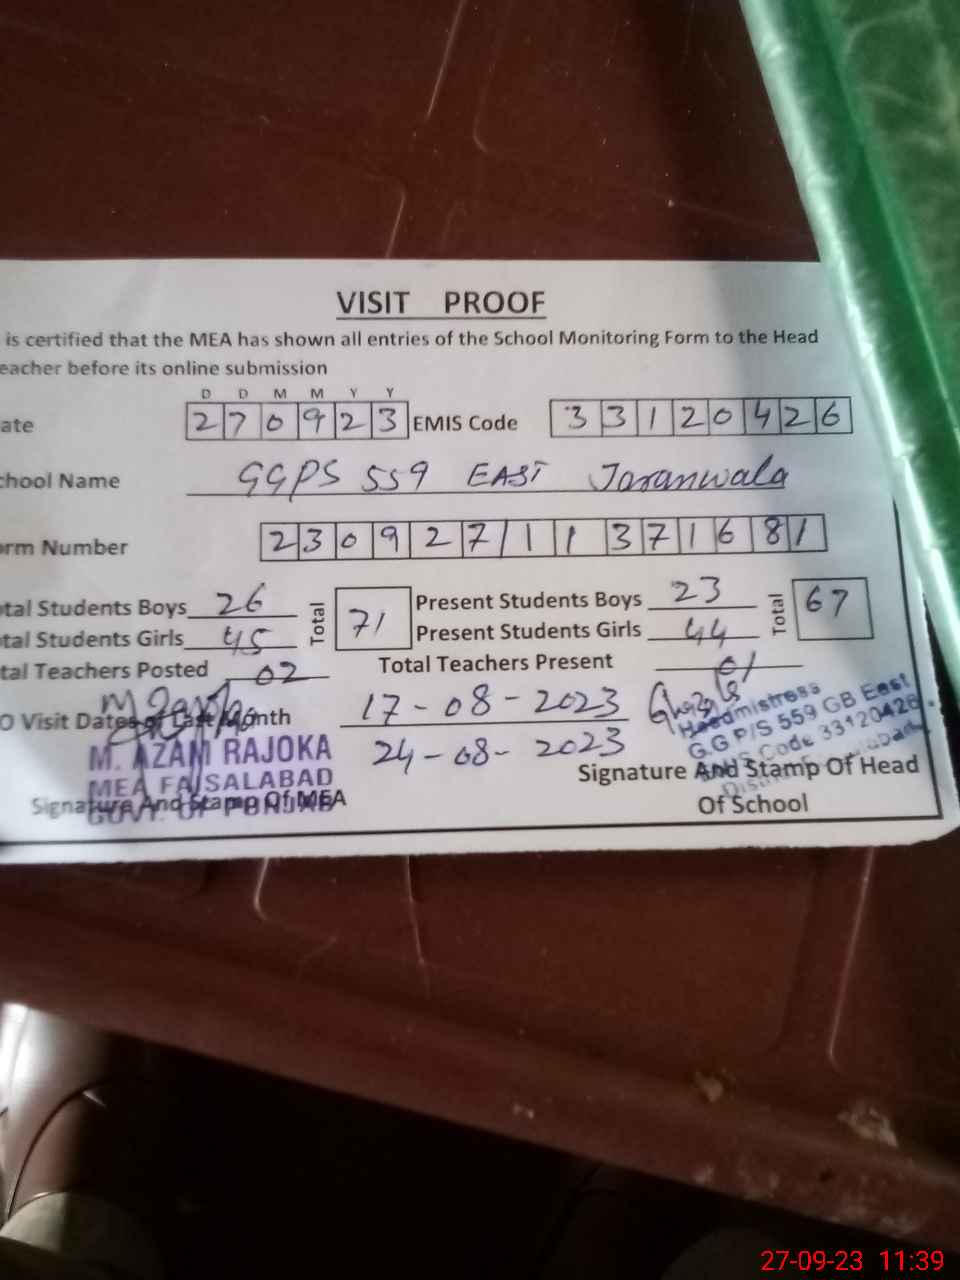 VISIT PROOF
is certified that the MEA has shown all entries of the School Monitoring Form to the Head
eacher before its online submission
D D M M Y Y
ate 270923 EMIS Code 33120426
chool Name GGPS 559 EAST Jaranwala
orm Number 23092711371681
tal Students Boys 26 Total 71 Present Students Boys 23 Total 67
tal Students Girls 45 Present Students Girls 44
tal Teachers Posted 02 Total Teachers Present 01
O Visit Dates of Last Month 17-08-2023
24-08-2023
M. AZAM RAJOKA
MEA FAISALABAD
GOVT. OF PUNJAB
Signature And Stamp Of MEA
Headmistress
G.G P/S 559 GB East
Code 33120426
Signature And Stamp Of Head
Of School
27-09-23 11:39